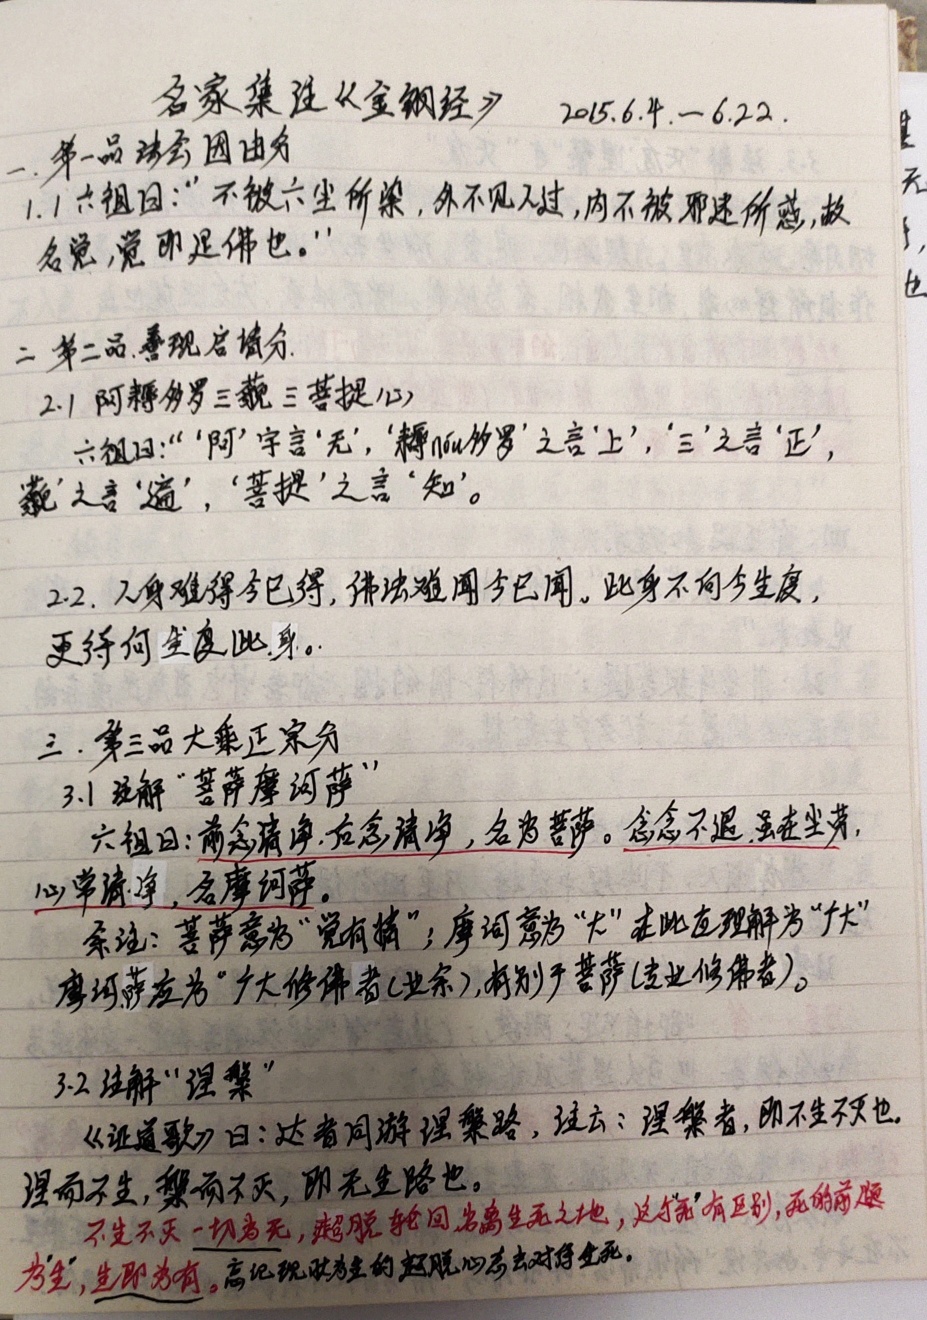 名家集注《金钢经》 2015.6.4.—6.22.
一.第一品法会因由分
1.1 六祖曰:“不被六尘所染,外不见人过,内不被邪迷所惑,故
名觉,觉即是佛也。”
二 第二品.善现启请分.
2.1 阿耨多罗三藐三菩提心
六祖曰:“‘阿’字言‘无’,‘耨nou多罗’之言‘上’,‘三’之言‘正’,
藐’之言‘遍’,‘菩提’之言‘知’。
2.2. 人身难得今已得,佛法难闻今已闻。此身不向今生度,
更待何生度此身。
三.第三品大乘正宗分
3.1 注解“菩萨摩诃萨”
六祖曰:前念清净.后念清净,名为菩萨。念念不退.虽在尘劳,
心常清净,名摩诃萨。
余注:菩萨意为“觉有情”;摩诃意为“大”在此应理解为“广大”
摩诃萨应为“广大修佛者(业余),有别于菩萨(专业修佛者)。
3.2 注解“涅槃”
《证道歌》曰:达者同游涅槃路,注云:涅槃者,即不生不灭也.
涅而不生,槃而不灭,即无生路也。
不生不灭一切为无,超脱轮回 离生死之地,这与“死”有区别,死的前题
为“生”,生即为有。